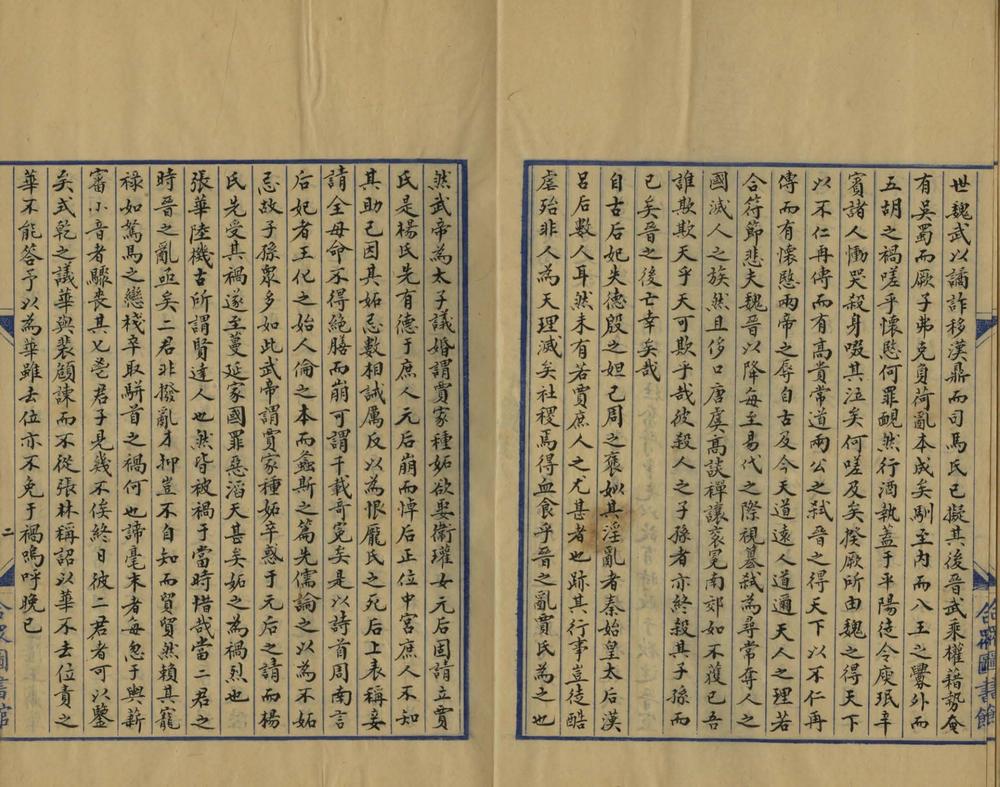 世魏武以譎詐移漢鼎而司馬氏已擬其後晉武乘權藉勢奄
有吳蜀而厥子弗克負荷亂本成矣馴至內而八王之釁外而
五胡之禍嗟乎懷愍何罪靦然行酒執蓋于平陽徒令庾珉辛
賓諸人慟哭殺身啜其泣矣何嗟及矣揆厥所由魏之得天下
以不仁再傳而有高貴常道兩公之弒晉之得天下以不仁再
傳而有懷愍兩帝之辱自古及今天道遠人道邇天人之理若
合符節悲夫魏晉以降每至易代之際視篡弒為尋常奪人之
國滅人之族然且侈口唐虞高談禪讓袞冕南郊如不獲已吾
誰欺欺天乎天可欺乎哉彼殺人之子孫者亦終殺其子孫而
已矣晉之後亡幸矣哉
自古后妃失德殷之妲己周之褒姒其淫亂者秦始皇太后漢
呂后數人耳然未有若賈庶人之尤甚者也跡其行事豈徒酷
虐殆非人為天理滅矣社稷焉得血食乎晉之亂賈氏為之也
然武帝為太子議婚謂賈家種妬欲娶衛瓘女元后固請立賈
氏是楊氏先有德于庶人元后崩而悼后正位中宮庶人不知
其助己因其妬忌數相誡厲反以為恨龐氏之死后上表稱妾
請全母命不得絕膳而崩可謂千載奇冤矣是以詩首周南言
后妃者王化之始人倫之本而螽斯之篇先儒論之以為不妬
忌故子孫眾多如此武帝謂賈家種妬辛惑于元后之請而楊
氏先受其禍遂至蔓延家國罪惡滔天甚矣妬之為禍烈也
張華陸機古所謂賢達人也然皆被禍于當時惜哉當二君之
時晉之亂亟矣二君非撥亂才抑豈不自知而貿貿然賴其寵
祿如駑馬之戀棧卒取駢首之禍何也諦毫末者每忽于輿薪
審小音者驟喪其匕鬯君子見幾不俟終日彼二君者可以鑒
矣式乾之議華與裴頠諫而不從張林稱詔以華不去位責之
華不能答予以為華雖去位亦不免于禍嗚呼晚已
二
合眾圖書館